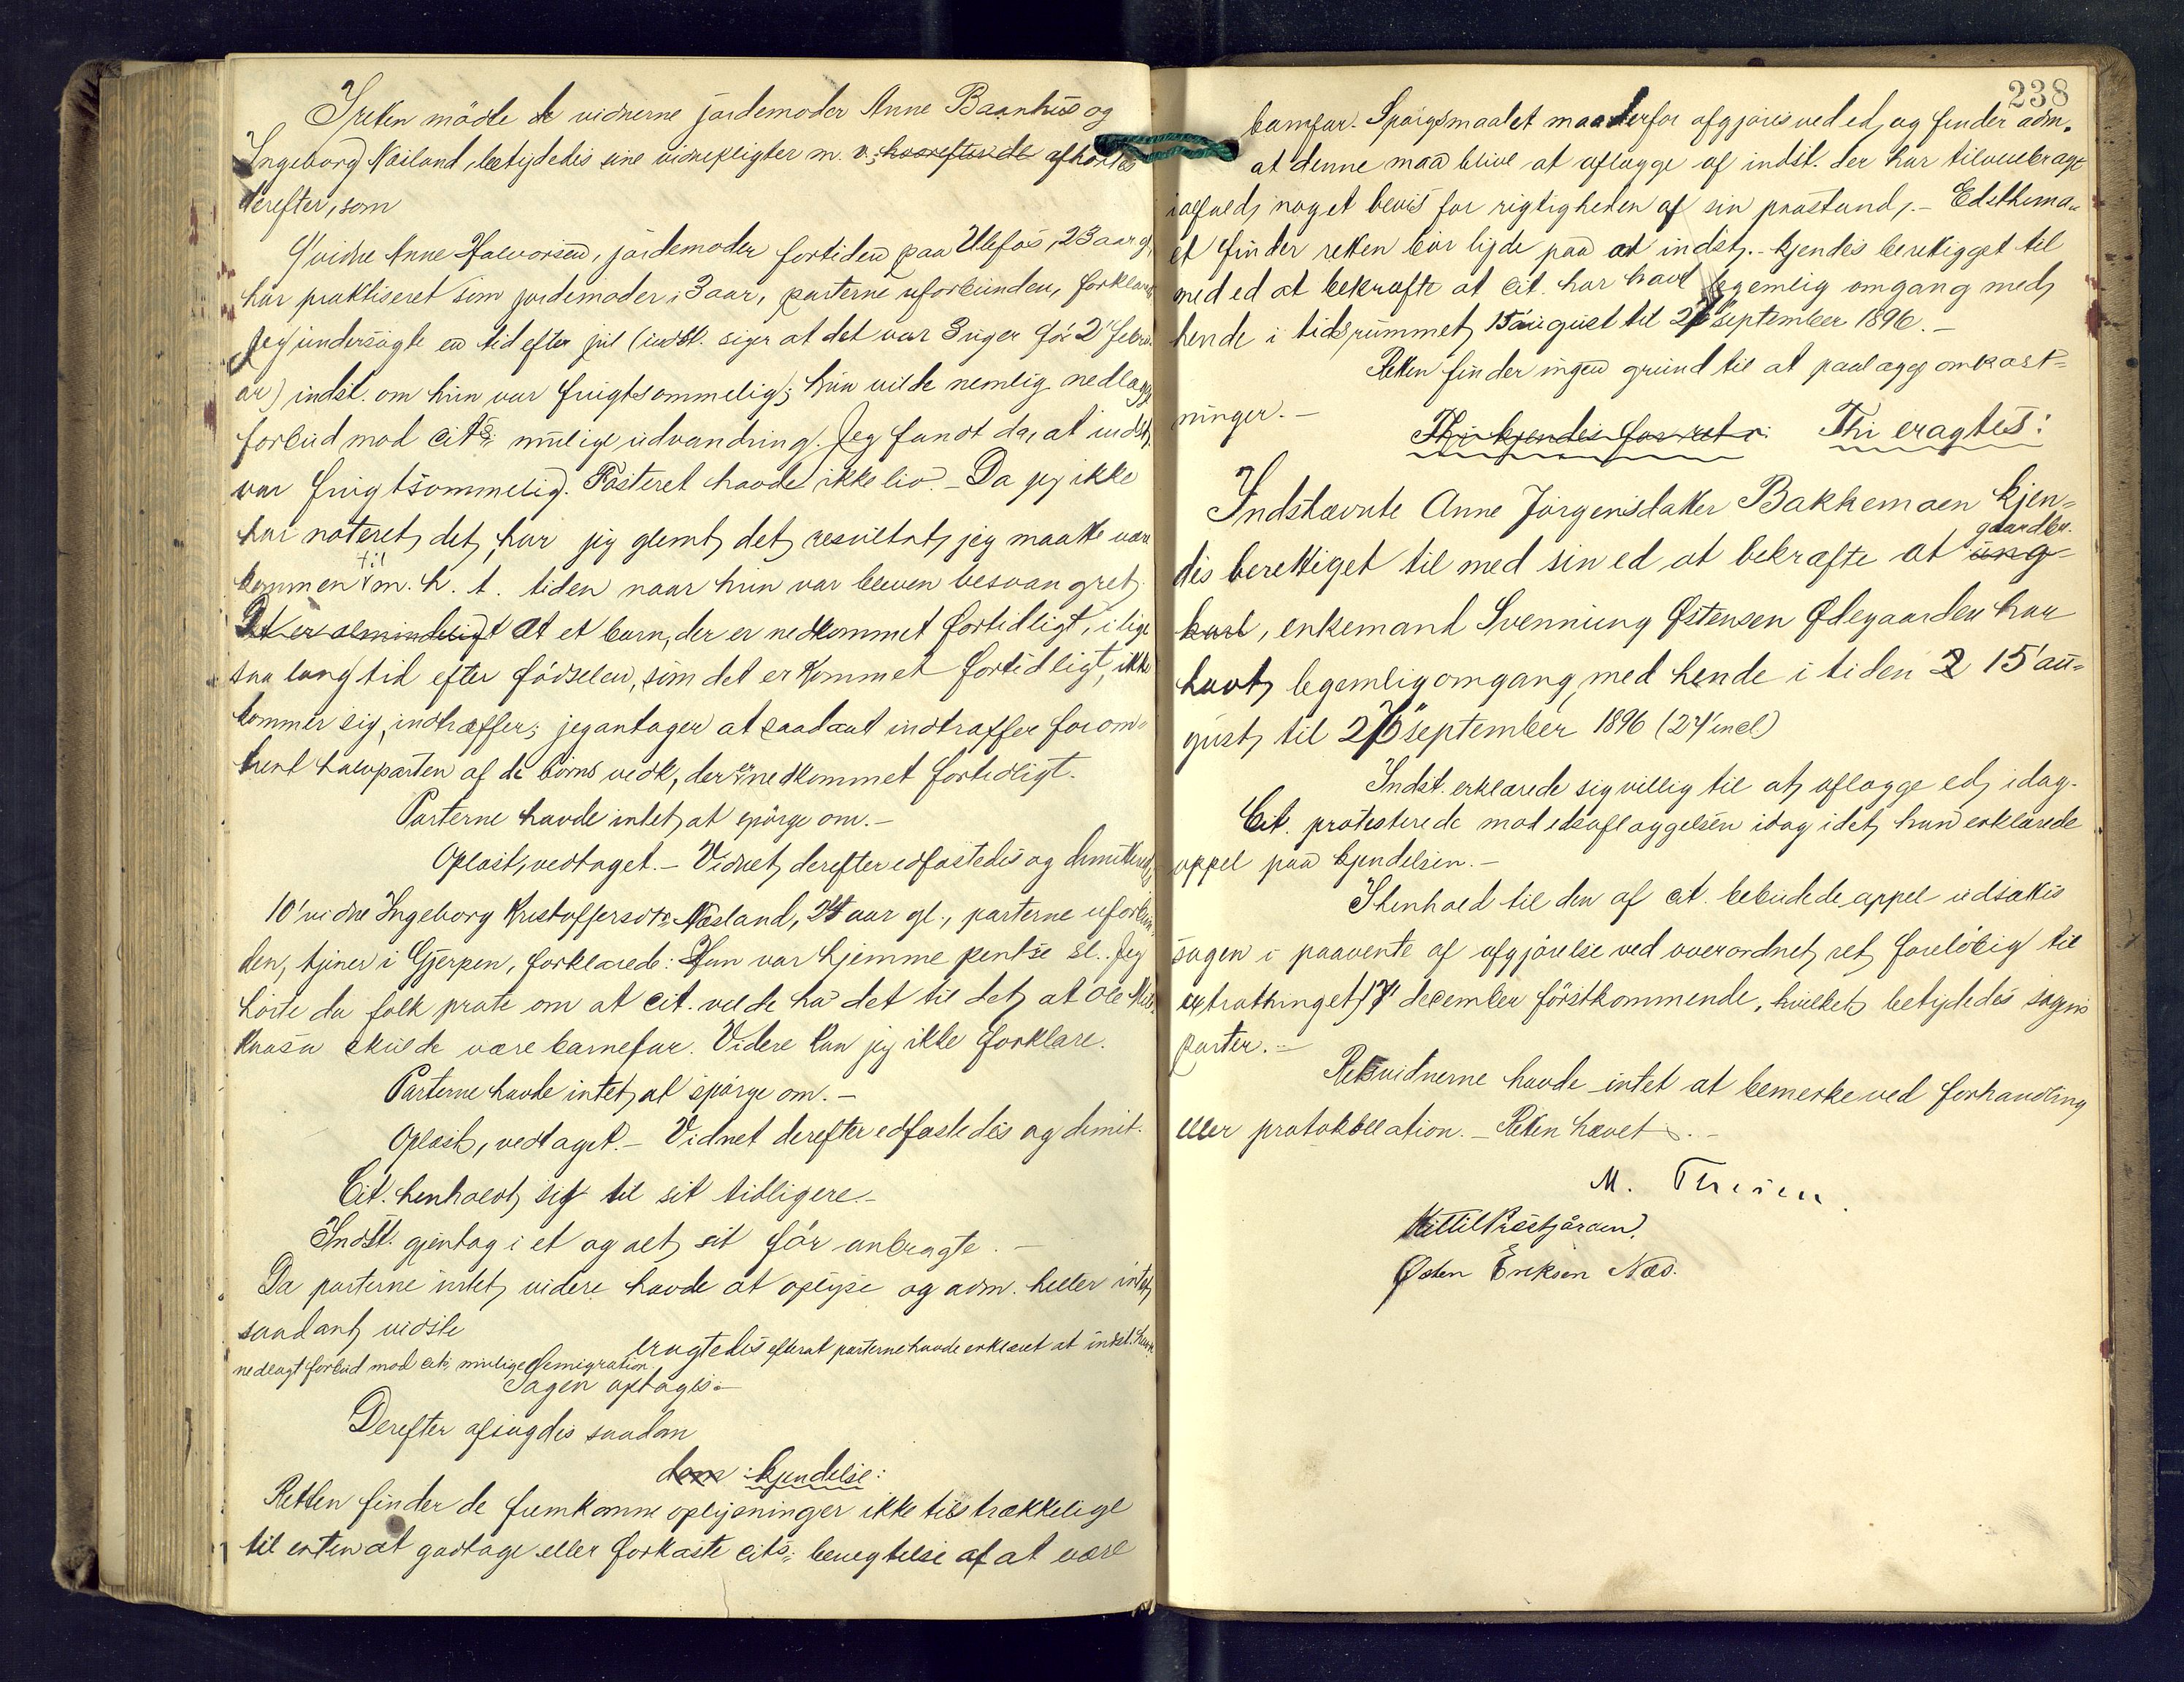 I retten mødte de vidnerne jordemoder Anne Baanhus og
Ingeborg Næsland, betydedes sine vidnepligter m. v., hvorefter de afhørtes
derefter, som
9' vidne Anne Halvorsen, jordemoder fortiden paa Ulefos, 23 aar gl,
har praktiseret som jordemoder i 3 aar, parterne uforbunden, forklared
Jeg undersøgte en tid efter jul (indst. siger at det var 3 uger før 2' febru-
ar) indst. om hun var frugtsommelig; hun vilde nemlig nedlægge
forbud mod cits: mulige udvandring. Jeg fandt da, at indst.
var frugtsommelig. Fosteret havde ikke liv. - Da jeg ikke
har noteret det, har jeg glemt det resultat, jeg maatte være
kommen til m. h. t. tiden naar hun var bleven besvangret.
Det er almindeligt At et barn, der er nedkommet fortidligt, i lige
saa lang tid efter fødselen, som det er kommet fortidligt, ikke
kommer sig, indtræffer; jeg antager at saadant indtræffer for om-
trent halvparten af de børns vedk, der er nedkommet fortidligt.
Parterne havde intet at spørge om. -
Oplæst, vedtaget. - Vidnet derefter edfæstedes og dimitteredes
10' vidne Ingeborg Kristoffersdtr Næsland, 24 aar gl., parterne uforbun-
den, tjener i Gjerpen, forklarede: Hun var hjemme pentse sl.. Jeg
hørte da folk prate om at cit. vilde ha det til det, at Ole
skulde være barnefar. Videre kan jeg ikke forklare.
Parterne havde intet at spørge om. -
Oplæst, vedtaget. - Vidnet derefter edfæstedes og dimit.
Cit. henholdt sig til sit tidligere. -
Indst. gjentog i et og alt sit før anbragte. -
Da parterne intet videre havde at oplyse og adm. heller intet
saadant vidste
eragtedes efterat parterne havde erklæret at indst. havde
nedlagt forbud mod cits mulige emigration
Sagen optages. -
Derefter afsagdes saadan
dom: kjendelse:
Retten finder de fremkomne oplysninger ikke tilstrækkelige
til enten at godtage eller forkaste cits: benegtelse af at være
238
barnfar. Spørgsmaalet maa derfor afgjøres ved ed, og finder adm.
at denne maa blive at aflægge af indst. der har tilveiebragt
ialfald noget bevis for rigtigheden af sin paastand. - Edsthema-
et finder retten bør lyde paa at indst. - kjendes berettigget til
med ed at bekræfte at cit. har havt legemlig omgang med
hende i tidsrummet 15' august til 26' september 1896. -
Retten finder ingen grund til at paalægge omkost-
ninger. -
Thi kjendes for ret: Thi eragtes:
Indstævnte Anne Jørgensdatter Bakkemoen kjen-
des berettiget til med sin ed at bekræfte at ung- gaardbr.
karl, enkemand Svenning Østensen Ødegaarden har
havt legemlig omgang med hende i tiden 2 15' au-
gust til 26' september 1896 (24' incl)
Indst. erklærede sig villig til at aflægge ed idag.
Cit. protesterede mod edsaflæggelsen idag idet han erklærede
appel paa kjendelsen. -
I henhold til den af cit. bebudede appel udsættes
sagen i paavente af afgjørelse ved overordnet ret foreløbig til
extrathinget 17' december førstkommende, hvilket betydedes sagens
parter. -
Retsvidnerne havde intet at bemerke ved forhandling
eller protokollation. - Retten hævet. -
M. Thesen
Kittil Præstjåren.
Østen Eriksen Næs.